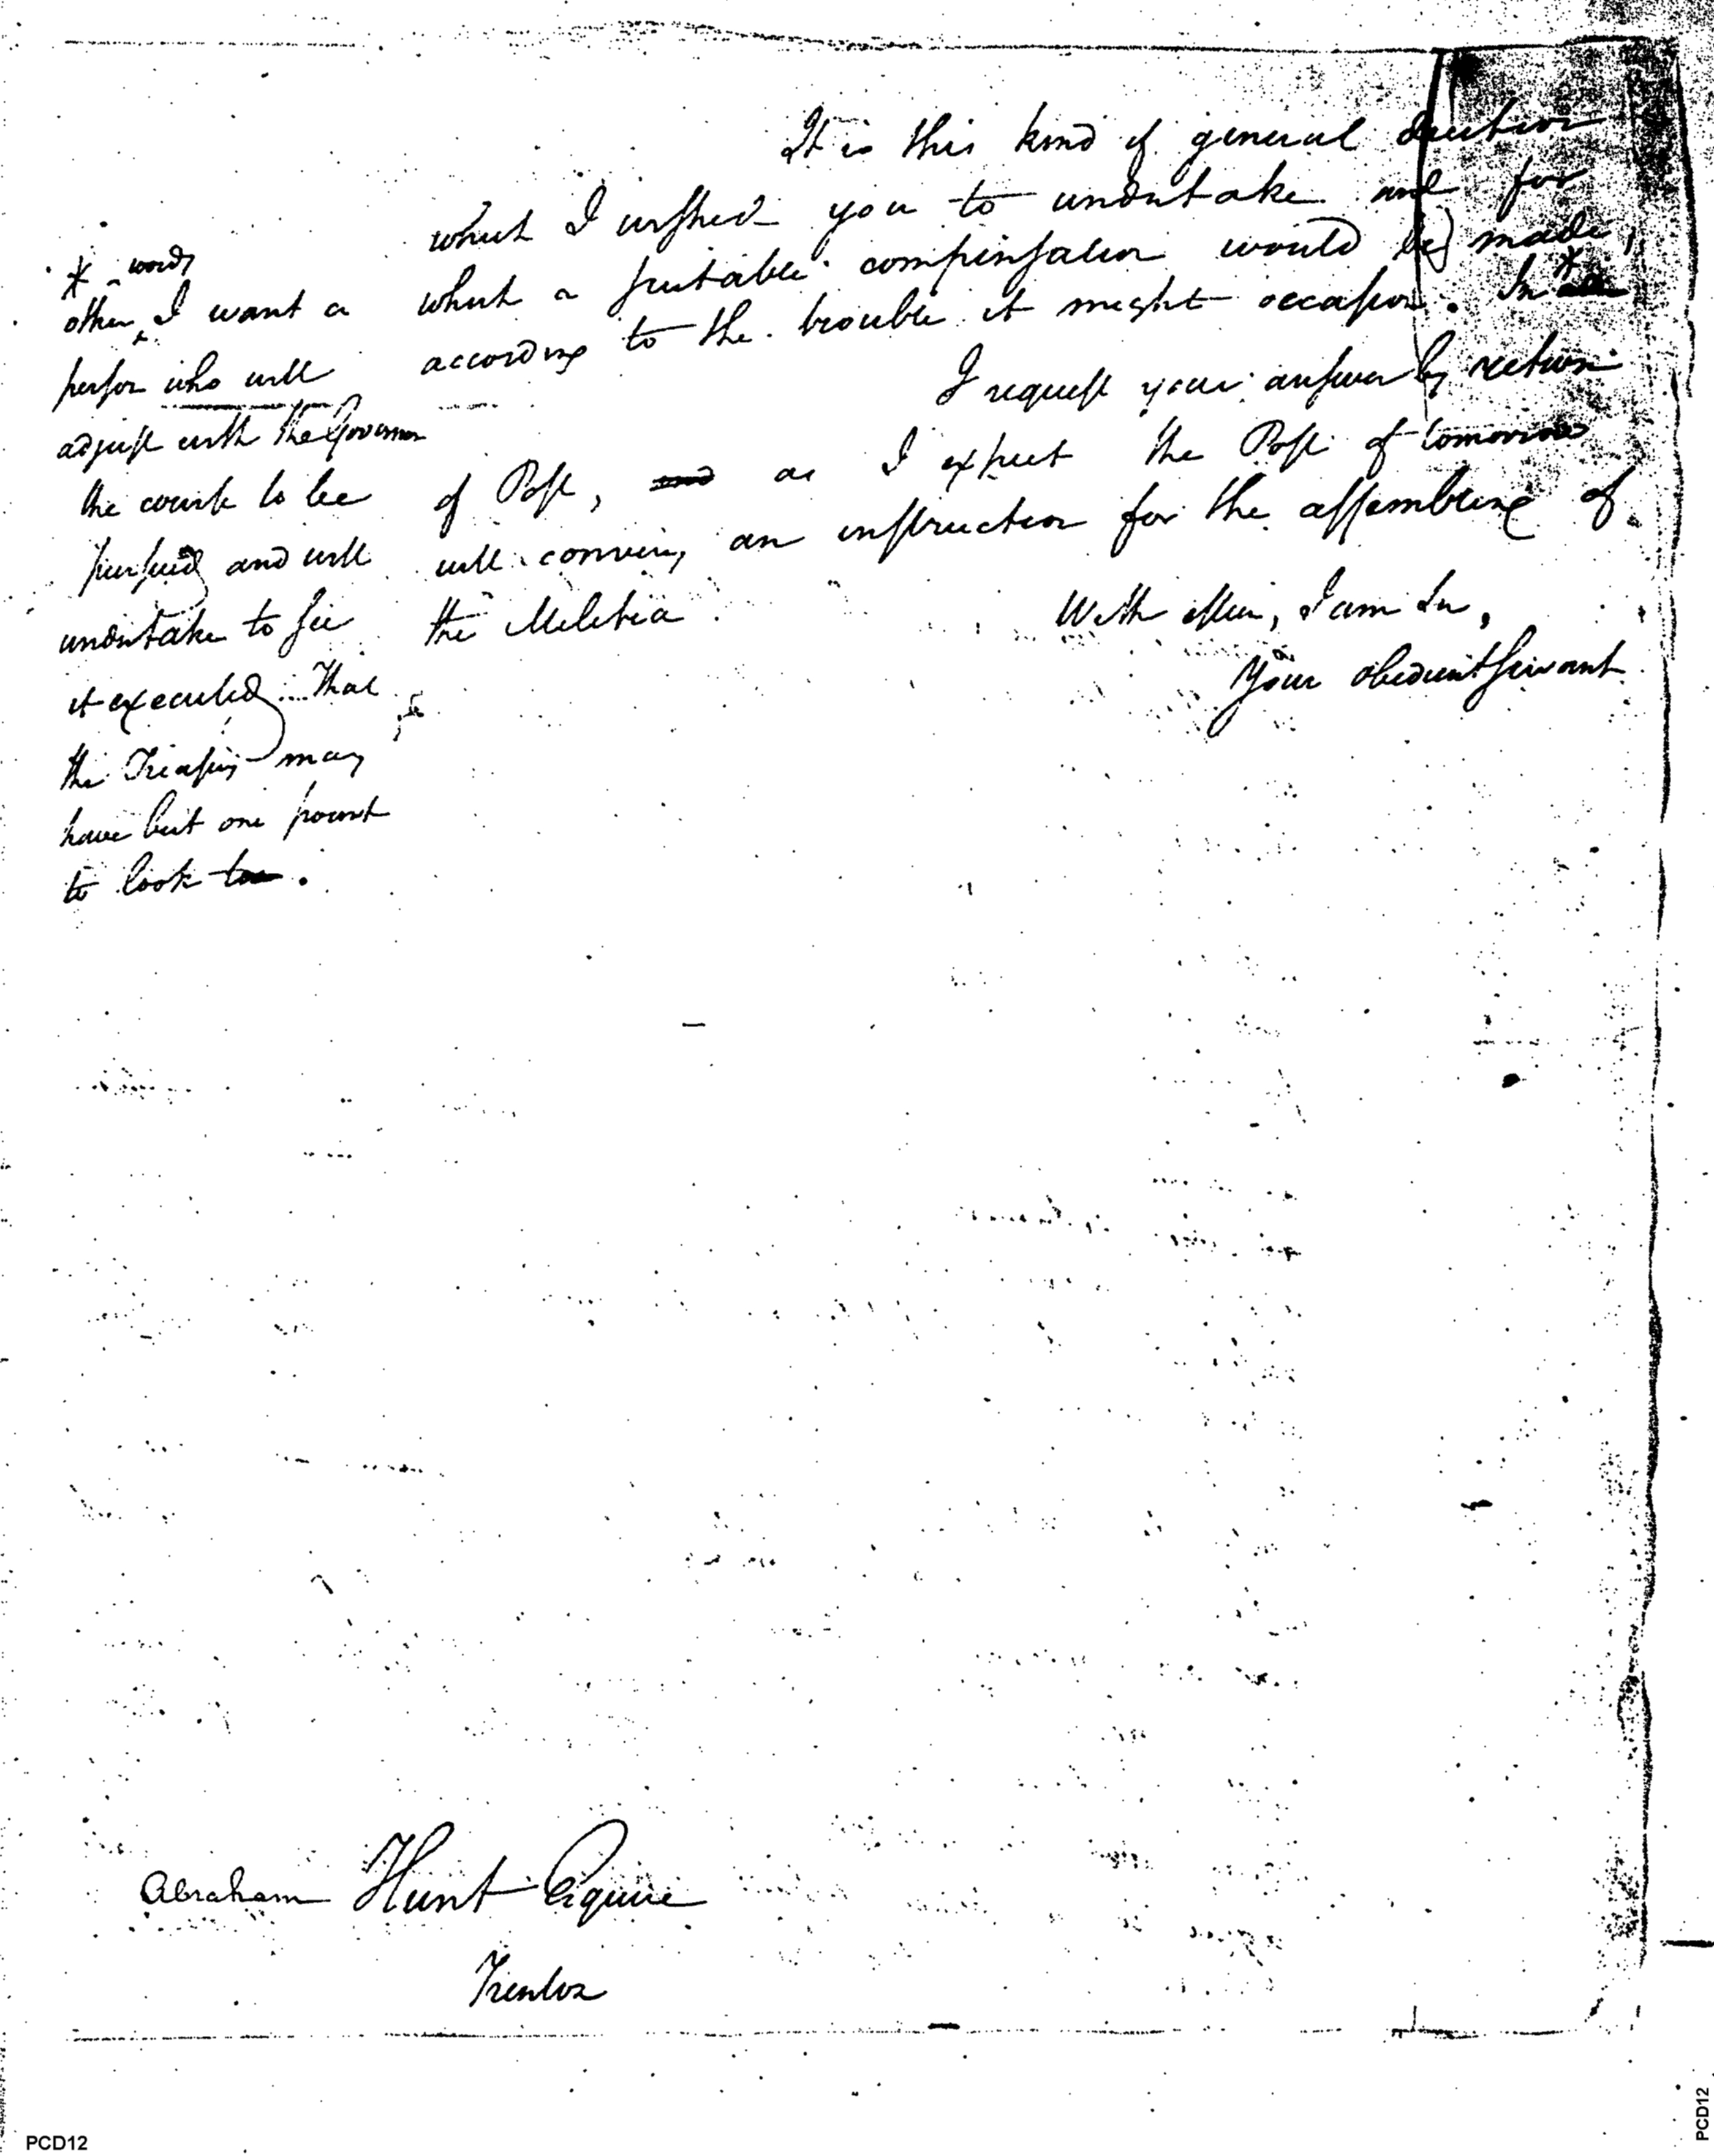 It is this kind of general direction
what I wished you to undertake and for
what a suitable compensation would be made,
according to the trouble it might occasion. In
* words
other, I want a
person who will
adjust with the Governor
the course to be
pursued and will
undertake to see
it executed. That
the Treasury may
have but one point
to look to.
I request your answer by return
of Post, and as I expect the Post of tomorrow
will convey an instruction for the assembling of
the Militia.
With esteem, I am Sir,
Your obedient Servant
Abraham Hunt Esquire
Trenton
PCD12
PCD12